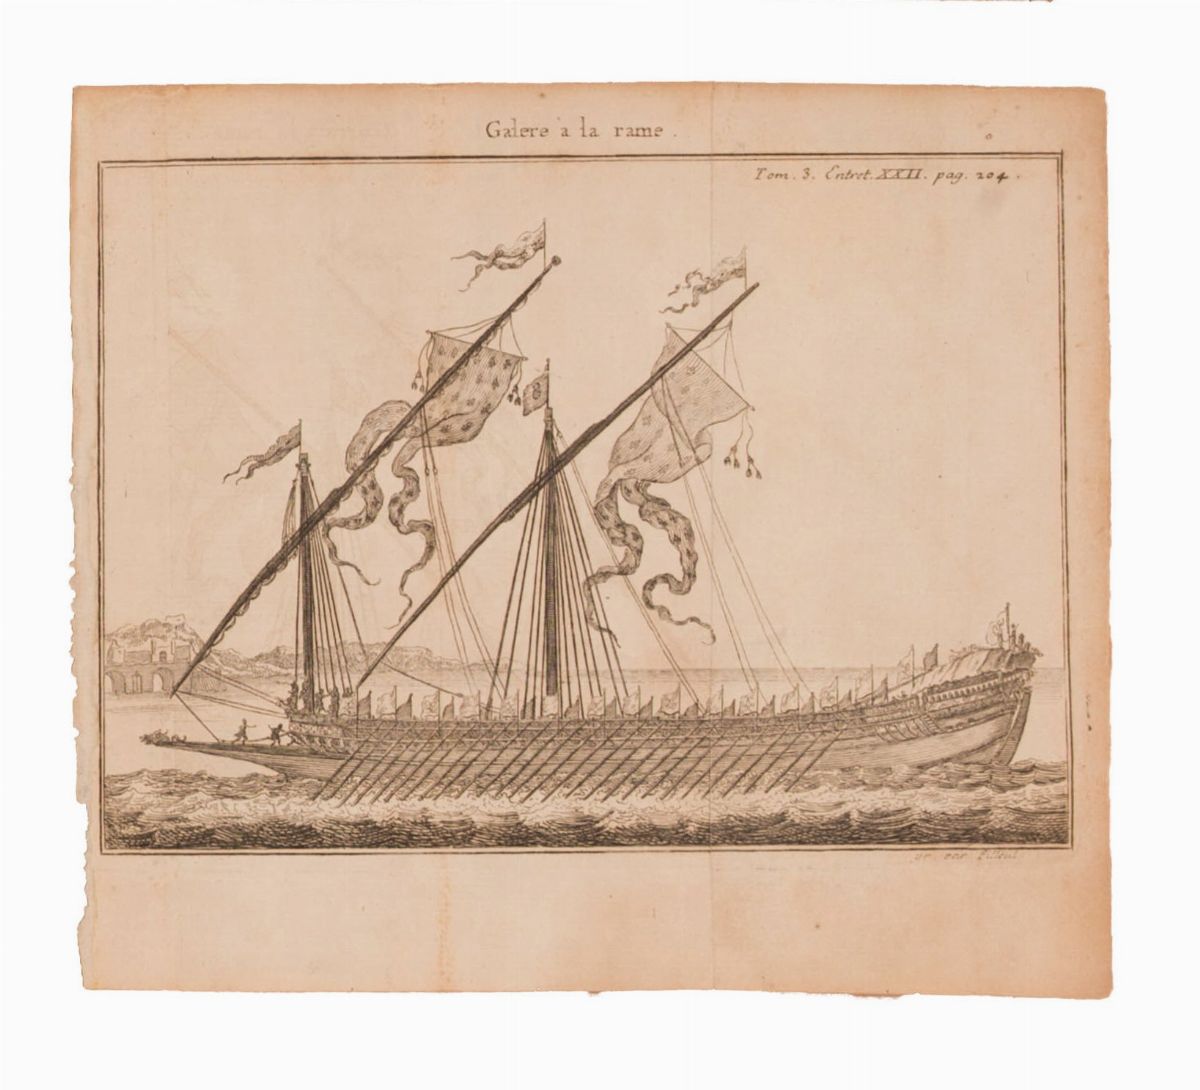 Galere à la rame .
Tom . 3. Entret. XXII. pag. 204 .
gr par Filleul